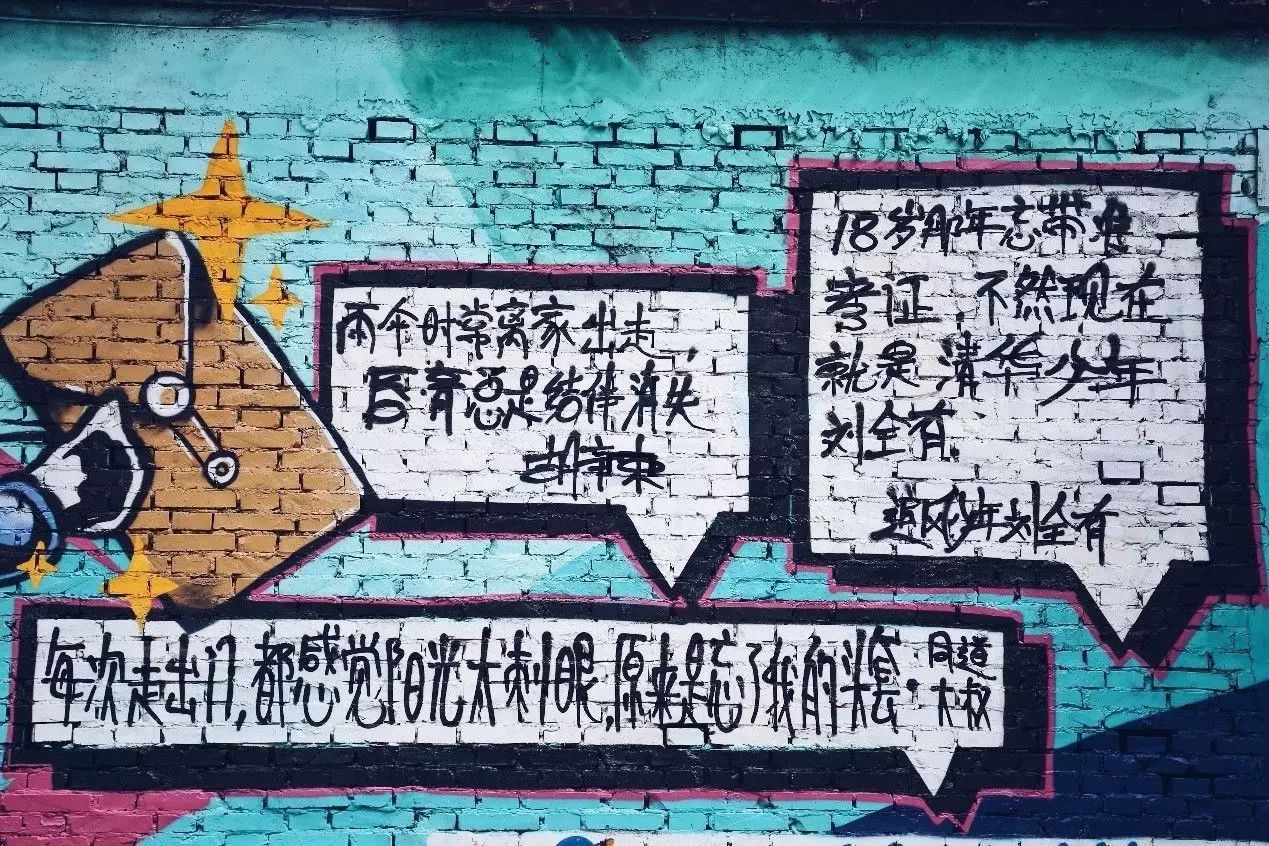 雨伞时常离家出走,
后育总是结伴消失
胡辛束
18岁那年忘带准
考证,不然现在
就是清华少年
刘全有.
追风少年刘全有
每次走出门,都感觉阳光太刺眼,原来是忘了我的头套.
同道
大叔